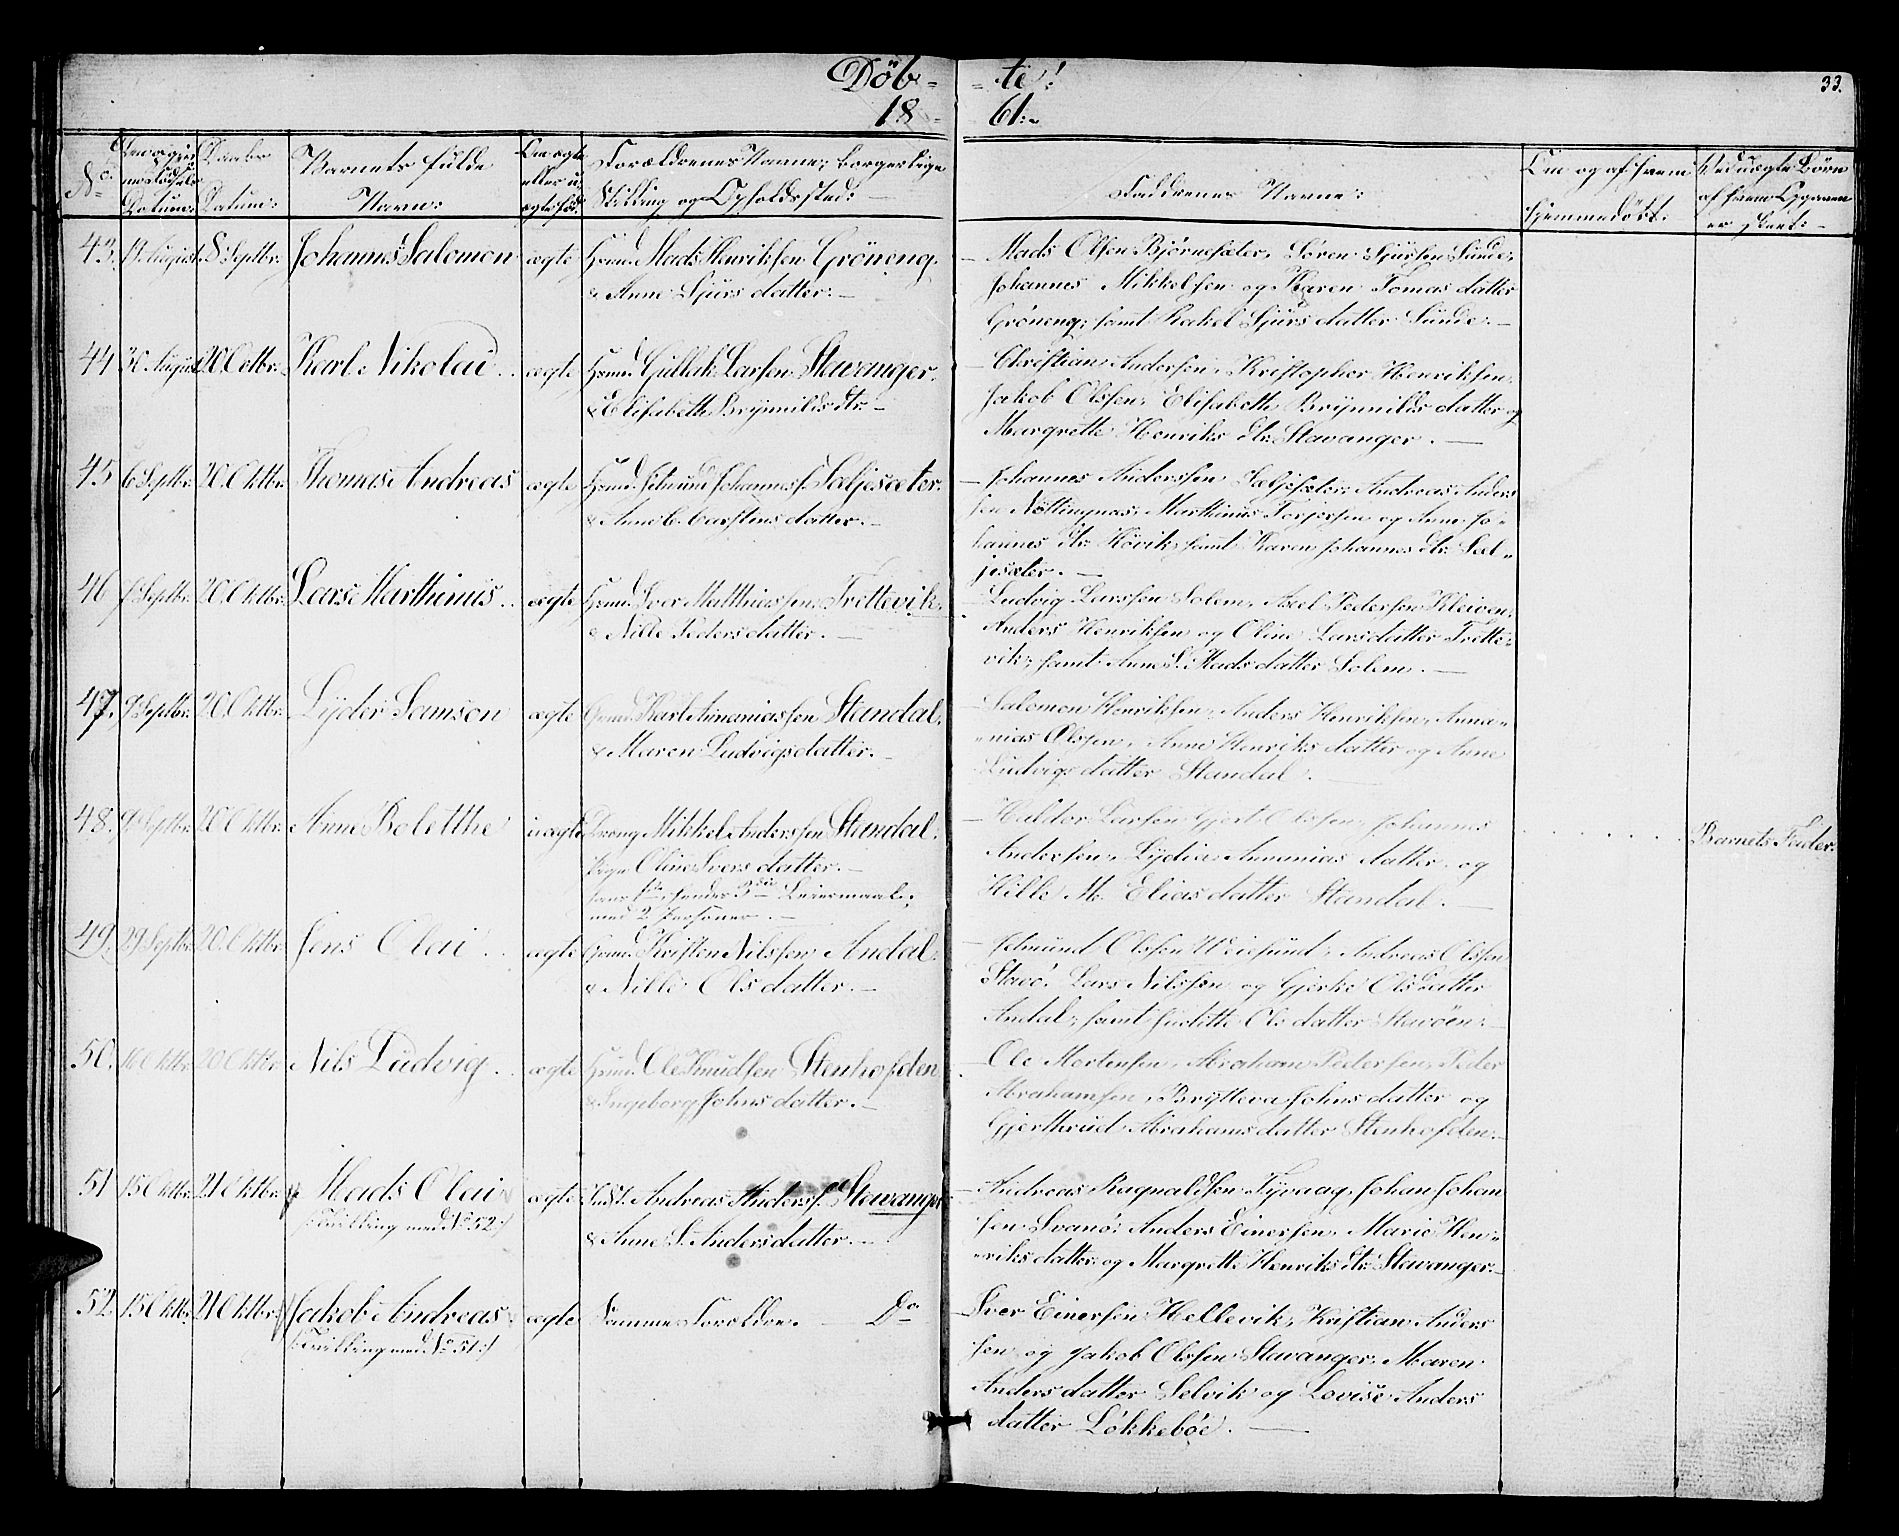 Döb- -te!
18- 61:~
33.
No:
Daabs
Datum:
Barnets fulde
Navn:
Om ægte
eller u-
ægte föd:
Forældrenes Navne, borgerlige
Stilling og Opholdssted:
Faddrenes Navne:
Om og af hvem
hjemmedöbt:
Ved uægte Börn
af hvem Opgaven
er skeet:
43. 14 August. 8 Septbr. Johannes Salomon ægte Hsmd. Mads Henriksen Gröneng,
& Anne Sjurs datter.
Mads Olsen Björnesæter, Sören Sjursen Sunde,
Johannes Mikkelsen og Karen Tomas datter
Gröneng; samt Rakel Sjurs datter Sunde.
44 30 August 20 Octbr. Karl Nikolai ægte Hsmd. Gullak Larsen Stavanger.
& Elisabeth Brynnilds dtr.
Christian Andersen, Kristopher Henriksen,
Jakob Olssen, Elisabeth Brynnilds datter og
Margrette Henriks dtr. Stavanger.
45 6 Septbr. 20 Oktbr. Thomas Andreas ægte Hsmd. Edmund Johannes s. Sæljesæter.
& Anne C. Carstens datter.
Johannes Anderssen Sæljesæter, Andreas Anders
sen Nöttingnæs, Marthinus Torjersen og Anne Jo-
hannes dtr. Hövik, samt Karen Johannes dtr. Sæl-
jesæter.
46 8 Septbr. 20 Oktbr. Lars Marthinus ægte Hsmd. Iver Matthiassen Trettevik.
& Nille Peders datter.
Ludvig Larssen Solem, Axel Pedersen Kleiven,
Anders Henriksen og Oline Larsdatter Trette-
vik, samt Anne S. Mads datter Solem.
47. 9 Septbr. 20 Oktbr. Lyder Samson ægte Gsmd. Karl Annaniassen Standal.
& Maren Ludvigsdatter.
Salomon Henriksen, Anders Henriksen, Anna-
-nias Olssen, Anne Henriks datter og Anne
Ludvigs datter Standal.
48. 9 Septbr. 20 Oktbr. Anne Bolette uægte Dreng Mikkel Anderssen Standal.
Pige Oline Ivers datter.
hans 1ste, hendes 3die Leiermaal,
med 2 Personer.
Haldor Larsen, Gjert Olssen, Johannes
Andersen, Lydia Annanias datter og
Hille M. Elias datter Standal.
Barnets Fader.
49. 29 Septbr. 20 Oktbr. Jens Olai ægte Gsmd. Kristen Nilssen Andal.
& Nille Ols datter.
Edmund Olssen Weiesund, Andreas Olssen
Stavö, Lars Nilssen og Gjerke Olsdatter
Andal, samt Juditte Ols datter Stavöen.
50. 1 Oktbr. 20 Oktbr. Nils Ludvig ægte Hsmd. Ole Knudsen Stenhofden
& Ingeborg Johns datter.
Ole Mortensen, Abraham Pedersen, Peder
Abrahamsen, Brytteva Johns datter og
Gjerthrud Abrahams datter Stenhofden.
51 15 Oktbr. 21 Oktbr. Mads Olai ægte Indst. Andreas Anderss. Stavanger
/:Tvilling med No 52:/
& Anne S. Andersdatter.
Andreas Ragnaldsen Tyvaag, Johan Johan
sen Svanö, Anders Einersen, Marie Hen-
-riks datter og Margrette Henriks dtr. Stavanger.
52. 15 Oktbr. 21 Oktbr. Jakob Andreas ægte Samme Foreldre. Do
/:Tvilling med No 51:/
Iver Einersen Hellevik, Kristian Anders
sen og Jakob Olssen Stavanger, Maren
Anders datter Selvik og Lovise Anders
datter Lökkeböe.